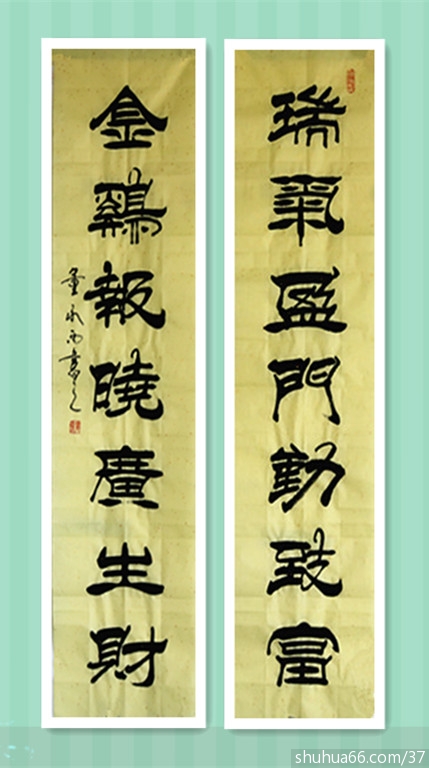 瑞氣盈門勤致富
金鷄報曉廣生財
shuhua66.com/37